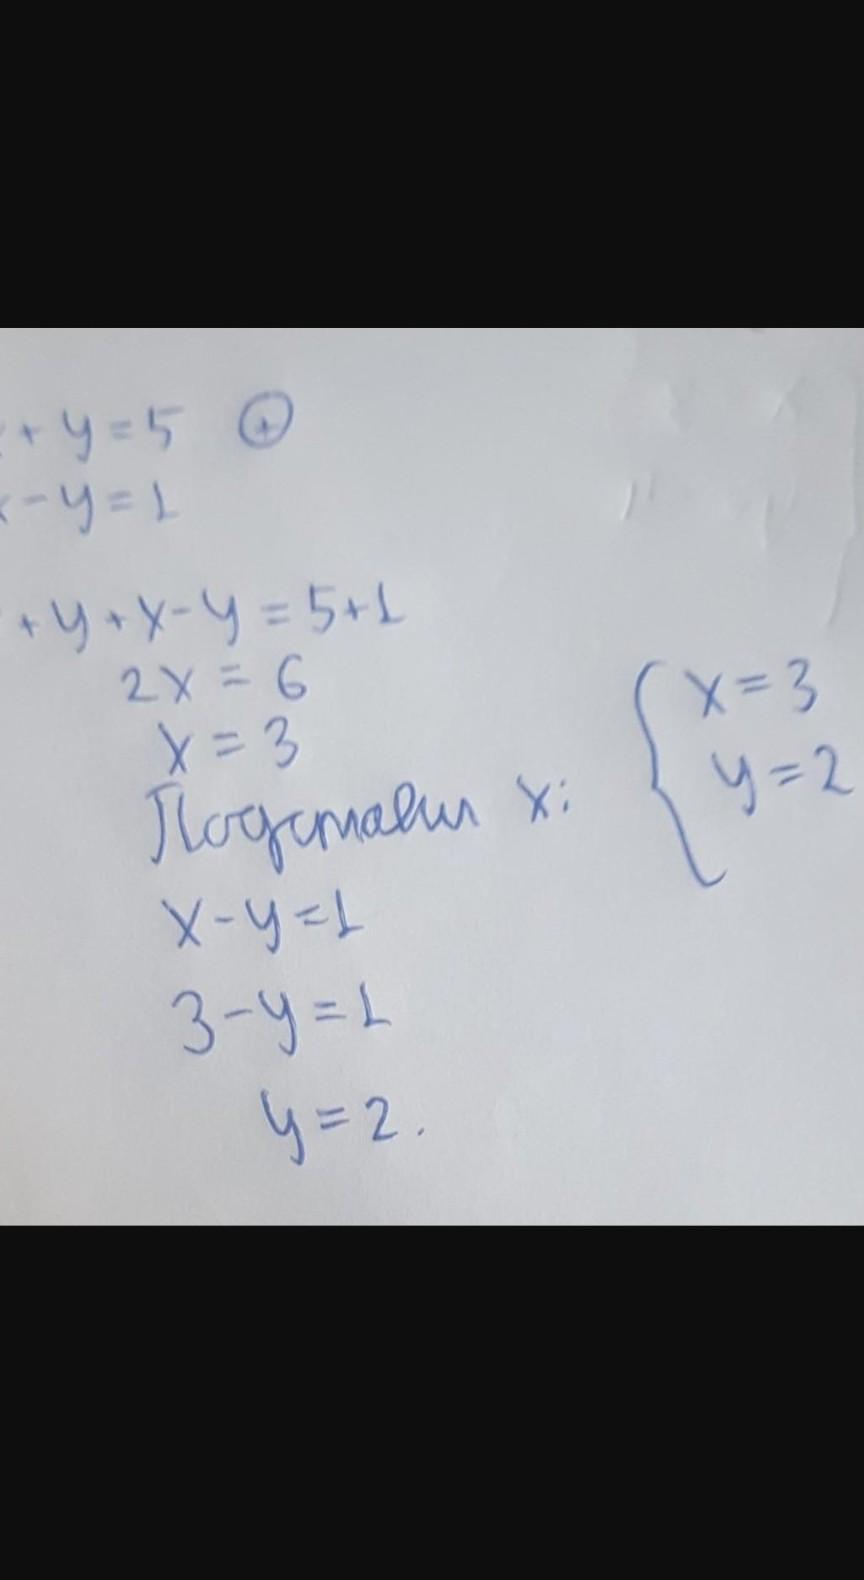 + y = 5 ⊕
x - y = 1
+ y + x - y = 5 + 1
2x = 6
x = 3
Подставим x:
x - y = 1
3 - y = 1
y = 2.
{ x = 3
y = 2